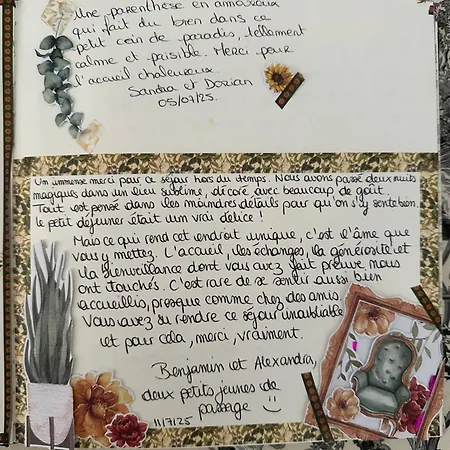 Une parenthèse en amoureux
qui fait du bien dans ce
petit coin de paradis, tellement
calme et paisible. Merci pour
l'accueil chaleureux.
Sandra et Dorian
05/07/25.
Un immense merci pour ce séjour hors du temps. Nous avons passé deux nuits
magiques dans un lieu sublime, décoré avec beaucoup de goût.
Tout est pensé dans les moindres détails pour qu'on s'y sente bien,
le petit déjeuner était un vrai délice !
Mais ce qui rend cet endroit unique, c'est l'âme que
vous y mettez. L'accueil, les échanges, la générosité et
la bienveillance dont vous avez fait preuve nous
ont touchés. C'est rare de se sentir aussi bien
accueillis, presque comme chez des amis.
Vous avez su rendre ce séjour inoubliable
et pour cela, merci, vraiment.
Benjamin et Alexandra,
deux petits jeunes de
passage
11/7/25